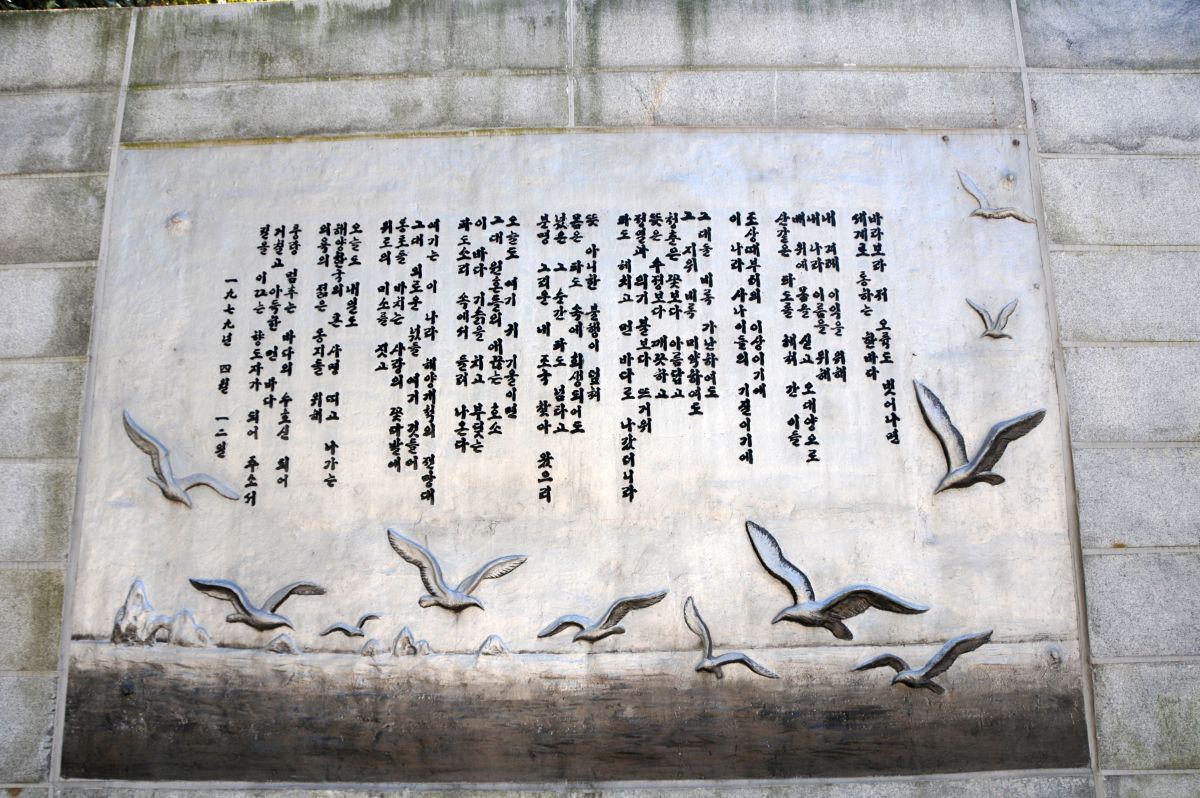 바라보라 저 오륙도 벗어나면
세계로 통하는 한바다
내 겨레 이익을 위해
내 나라 이름을 위해
배 위에 몸을 싣고 오대양으로
산같은 파도를 헤쳐 간 이들
조상때부터의 이상이기에
이 나라 사나이들의 기질이기에
그대들 비록 가난하여도
그 지위 비록 미약하여도
청춘은 꽃보다 아름답고
뜻은 수정보다 깨끗하고
정열과 의기 불보다 뜨거워
파도 헤치고 먼 바다로 나갔더니라
뜻 아니한 불행이 덮쳐
몸은 파도 속에 희생되어도
넋은 그 순간 파도 넘타고
분명 그리운 내 조국 찾아 왔으리
오늘도 여기 귀 기울이면
그대 원혼들의 애끊는 호소
이 바다 기슭을 치고 부딪는
파도소리 속에서 들려 나온다
여기는 이 나라 해양개척의 전망대
그대 외로운 넋들 여기 깃들어
봉호를 바치는 사랑의 꽃다발에
위로의 미소를 짓고
오늘도 내일도
해양한국의 큰 사명 띠고 나가는
의욕의 젊은 동지들 위해
풍랑 멈추는 바다의 수호신 되어
거칠고 아득한 먼 바다
길을 이끄는 향도자가 되어 주소서
一九七九년 四월 一二월